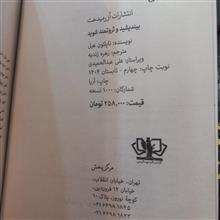 انتشارات آزرمیدخت
بیندیشید و ثروتمند شوید
نویسنده: ناپلئون هیل
مترجم: زهره زندیه
ویراستار: علی عبدالحمیدی
نوبت چاپ: چهارم - تابستان ۱۴۰۲
چاپ: آریا
شمارگان: ۱۰۰۰ نسخه
قیمت: ۲۵۸,۰۰۰ تومان
مرکز پخش
تهران، خیابان انقلاب،
خیابان ۱۲ فروردین،
کوچه نوروز، پلاک ۱۰